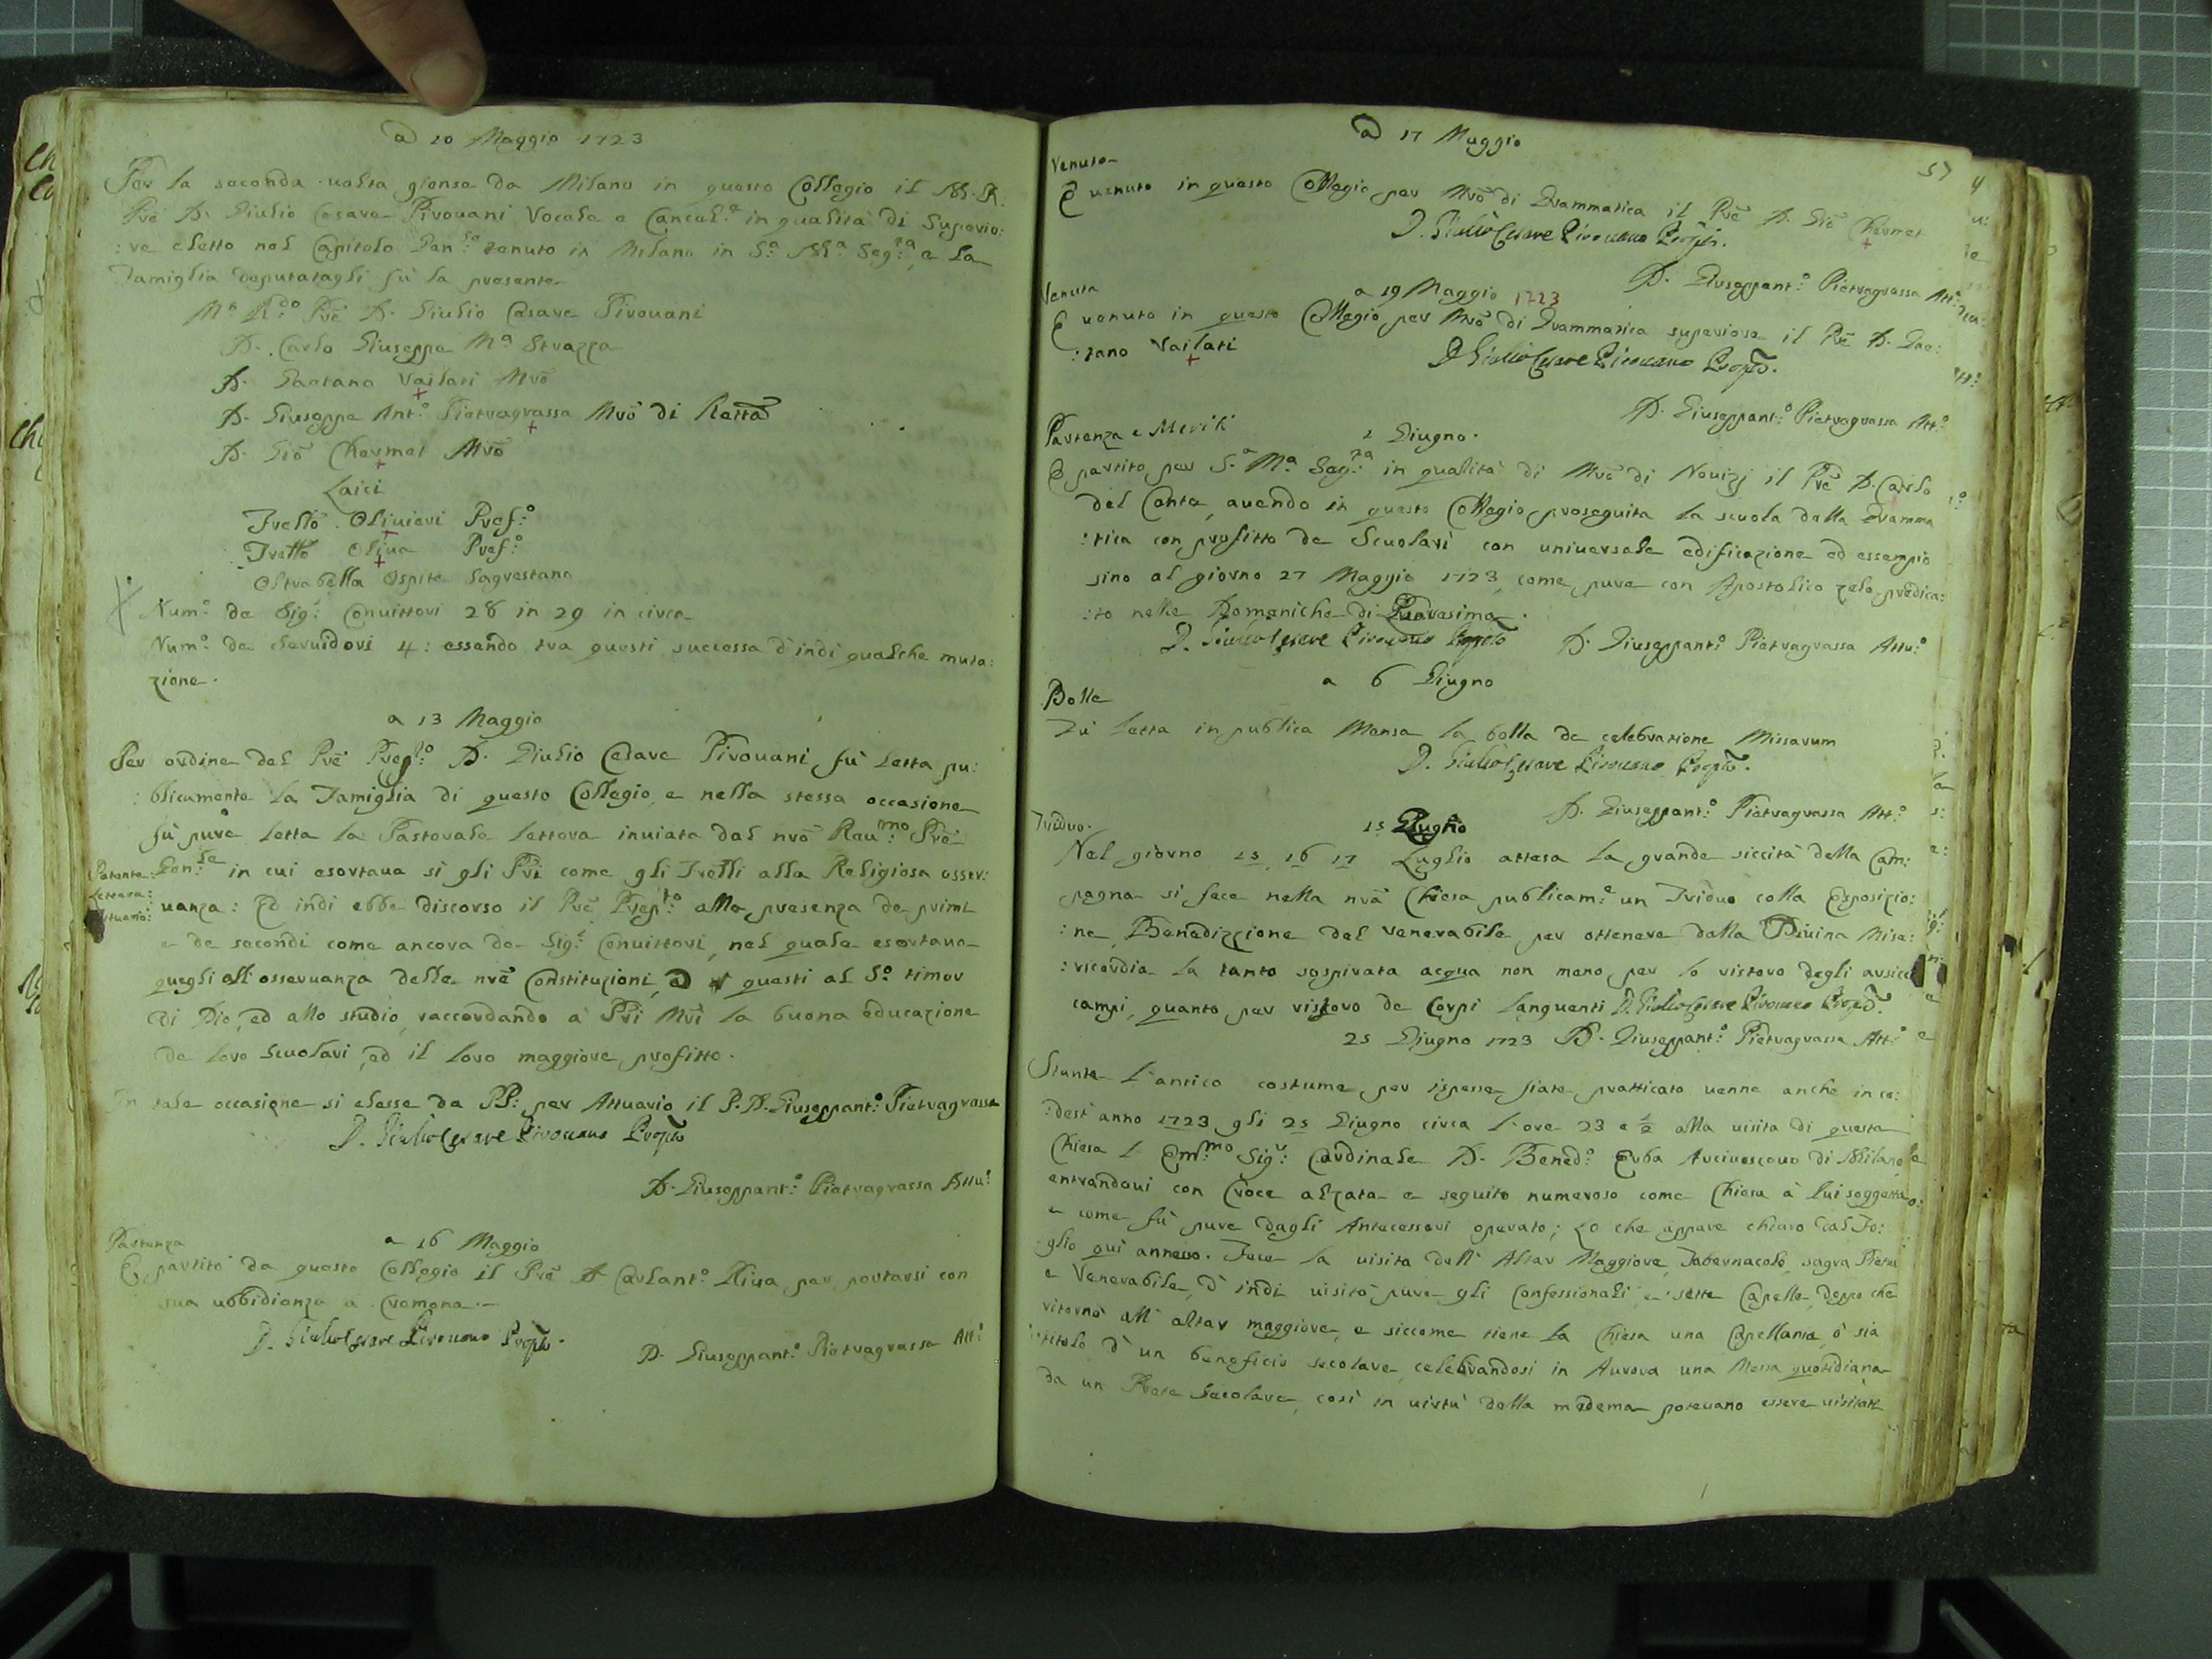 a 10 Maggio 1723
Per la seconda uolta gionse da Milano in questo Collegio il M. R.
Prē D. Giulio Cesare Pirouani Vocale e Cancel.e in qualità di Superio:
:re eletto nel Capitolo Gen:le tenuto in Milano in S.a M.a Seg:ta, e la
Famiglia deputatagli fù la presente
M.o R:do Prē D. Giulio Cesare Pirouani
D. Carlo Giuseppe M.a Strazza
D. Gaetano Vailati Mrō
D. Giuseppe Ant.o Pietragrassa Mrō di Retta
D. Giō Chermet Mrō
Laici
Frello Oliuieri Pref.o
Frello Oliua Pref.o
Oltrabella Ospite Sagrestano
Num.o de Sig:i Conuittori 28 in 29 in circa
Num.o de Seruidori 4: essendo tra questi successa d'indi qualche muta:
zione.
a 13 Maggio
Per ordine del Prē Prep:to D. Giulio Cesare Pirouani fù letta pu:
:blicamente la Famiglia di questo Collegio, e nella stessa occasione
fù pure letta la Pastorale lettera inuiata dal nrō Reu:mo Prē
Gen:le in cui esortaua sì gli Pri come gli Frelli alla Religiosa osser:
Patente:
Lettera:
Attuario:
uanza: Ed indi ebbe discorso il Prē Prep:to alla presenza de primi
e de secondi come ancora de Sig:i Conuittori, nel quale esortaua
quegli all' osseruanza delle nrē Constituzioni, e questi al S.o timor
di Dio, ed allo studio, raccordando a Pri Mri la buona educazione
de loro Scuolari, ed il loro maggiore profitto.
In tale occasione si elesse da PP: per Attuario il P. D. Giuseppant:o Pietragrassa
D. Giulio Cesare Pirouano Prep̃to
D. Giuseppant:o Pietragrassa Attu:o
Partenza
a 16 Maggio
È partito da questo Collegio il Prē D Carlant:o Riua per portarsi con
sua ubbidienza a Cremona.
D. Giulio Cesare Pirouano Prep̃to.
D. Giuseppant:o Pietragrassa Att:o
57
a 17 Maggio
Venuta
È uenuto in questo Collegio per Mrō di Grammatica il Prē D. Giō Chermet
D. Giulio Cesare Pirouano Prep̃to.
D. Giuseppant:o Pietragrassa Att:o
Venuta
a 19 Maggio 1723
È uenuto in questo Collegio per Mrō di Grammatica superiore il Prē D. Gae:
:tano Vailati
D Giulio Cesare Pirouano Prep̃to.
D. Giuseppant:o Pietragrassa Att:o
Partenza e Meriti
2 Giugno.
È partito per S.a M.a Seg:ta in qualità di Mrō di Nouizj il Prē D. Carlo
del Conte, auendo in questo Collegio proseguita la scuola della Gramma
:tica con profitto de Scuolari con uniuersale edificazione ed essempio
sino al giorno 27 Maggio 1723, come pure con Apostolico zelo predica:
:to nelle Domeniche di Quaresima.
D. Giulio Cesare Pirouano Prep̃to
D. Giuseppant:o Pietragrassa Attu:o
a 6 Giugno
Bolle
Fù letta in publica Mensa la bolla de celebratione Missarum
D. Giulio Cesare Pirouano Prep̃to.
D. Giuseppant:o Pietragrassa Att:o
Triduo.
15 Luglio
Nel giorno 15, 16, 17 Luglio attesa la grande siccità della Cam:
pagna si fece nella nrā Chiesa publicam.e un Triduo colla Esposizio:
:ne, Benedizzione del Venerabile per ottenere dalla Diuina Mise:
:ricordia la tanto sospirata acqua non meno per lo ristoro degli arsicci
campi, quanto per ristoro de Corpi languenti D. Giulio Cesare Pirouano Prep̃to.
25 Giugno 1723 D. Giuseppant:o Pietragrassa Att:o
Stante l'antico costume per ispesse fiate pratticato uenne anche in co:
:dest' anno 1723 gli 25 Giugno circa l'ore 23 e ½ alla uisita di questa
Chiesa l' Em:mo Sig:r Cardinale D. Bened:o Erba Arciuescouo di Milano
entrandoui con Croce alzata e seguito numeroso come Chiesa à lui soggetta
e come fù pure dagli Antecessori operato; Lo che appare chiaro dal Fo:
glio quì annesso. Fece la uisita dell' Altar Maggiore, Tabernacolo, sagra Pietra
e Venerabile, d' indi uisitò pure gli Confessionali, e sette Capelle, doppo che
ritornò all' altar maggiore, e siccome tiene la Chiesa una Capellania, ò sia
titolo d' un beneficio secolare, celebrandosi in Aurora una Messa quotidiana
da un Prete Secolare, così in uirtù della medema poteuano essere uisitate